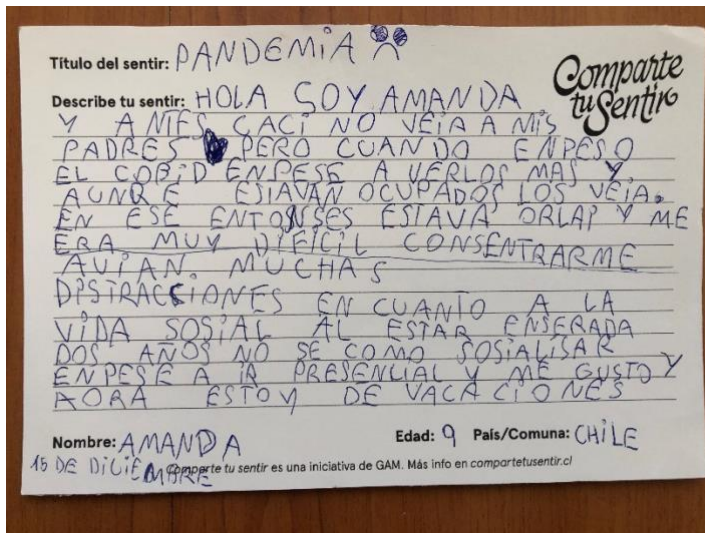 Título del sentir: PANDEMIA
Comparte
tu Sentir
Describe tu sentir: HOLA SOY AMANDA
Y ANTES CACI NO VEIA A MIS
PADRES PERO CUANDO ENPESO
EL COBID ENPESE A VERLOS MAS Y
AUNQE ESTAVAN OCUPADOS LOS VEIA.
EN ESE ENTONSES ESTAVA ORLAP Y ME
ERA MUY DIFICIL CONSENTRARME
AVIAN MUCHAS
DISTRACCIONES EN CUANTO A LA
VIDA SOSIAL AL ESTAR ENSERADA
DOS AÑOS NO SE COMO SOSIALISAR
ENPESE A IR PRESENCIAL Y ME GUSTO Y
AORA ESTOY DE VACACIONES
Nombre: AMANDA Edad: 9 País/Comuna: CHILE
15 DE DICIEMBRE
Comparte tu sentir es una iniciativa de GAM. Más info en compartetusentir.cl